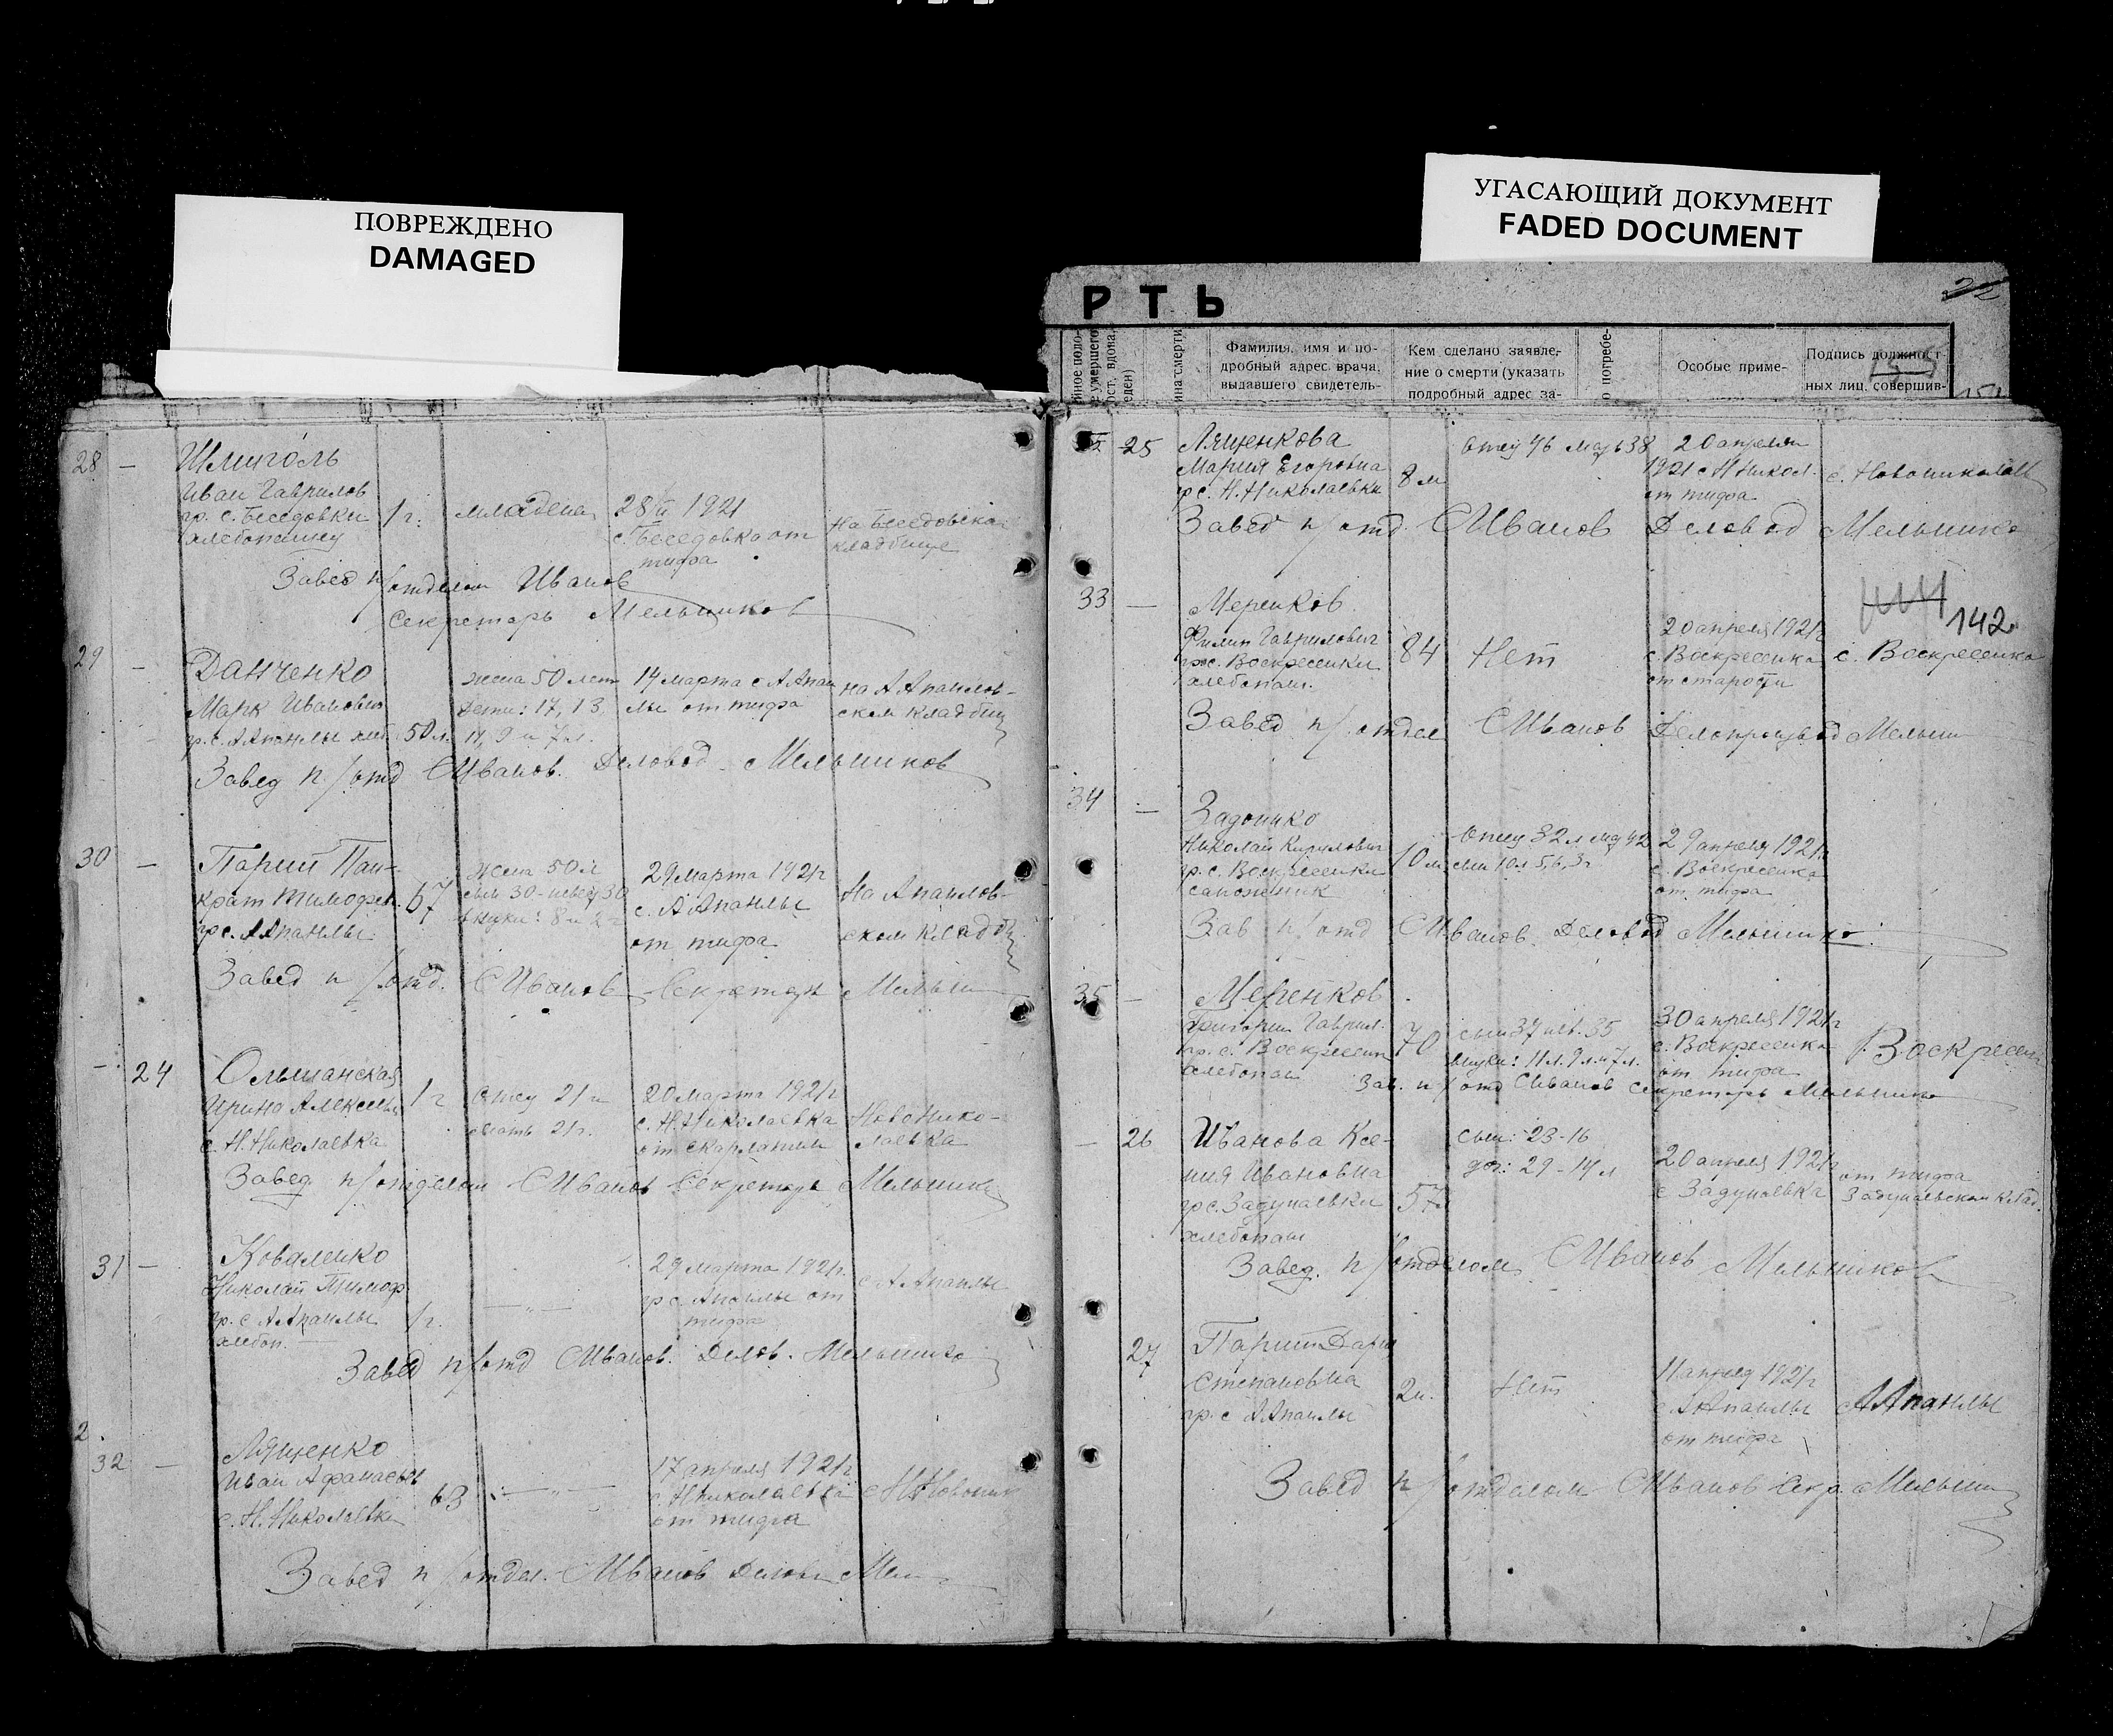 ПОВРЕЖДЕНО
DAMAGED
УГАСАЮЩИЙ ДОКУМЕНТ
FADED DOCUMENT
РТЬ
22
Фамилия, имя и по-
дробный адрес врача,
выдавшего свидетель-
Кем сделано заявле-
ние о смерти (указать
подробный адрес за-
о погребе-
Особые приме-
Подпись должност-
ных лиц, совершив-
28 —
Шмиголь
Иван Гаврилов
гр. с. Беседовки
хлебопашец
1 г.
младенец
28/II 1921
с. Беседовка от
тифа
На Беседовском
кладбище
Завед п/отделом Иванов
Секретарь Мельников
29 —
Данченко
Марк Иванович
гр. с. А Апанлы хлеб
50 л.
жена 50 лет
дети: 17, 13
11, 9 и 7 л.
14 марта с А Апан
лы от тифа
на А Апанлов-
ском кладбищ
Завед п/отд СИванов. Деловод. Мельников
30 —
Парий Пан-
крат Тимофеев.
гр с. А Апанлы
67
жена 50 л
сын 30 - невес 30
внуки: 8 и 2 г
29 марта 1921 г
с. А Апанлы
от тифа
На Апанлов-
ском кладб
Завед п/отд. СИванов Секретарь Мельни
— 24
Ольшанская
Ирина Алексеевн
с. Н. Николаевка
1 г
отец 21 г
мать 21 г.
20 марта 1921 г
с. Н. Николаевка
от скарлатин
Новонико-
лаевка
Завед п/отделом СИванов Секретарь Мельник
31 —
Коваленко
Николай Тимоф
гр. с А Апанлы
хлебоп.
1 г.
— " —
29 марта 1921 г.
гр с. Апанлы от
тифа
с А Апанлы
Завед п/отд СИванов. Делов. Мельнико
2.
32 —
Лященко
Иван Афанасьев
с. Н. Николаевки
63
— " —
17 апреля 1921 г
с. Н николаевка
от тифа
с Н Новоник
Завед п/отдел. СИванов Делов Мел
25
Лященкова
Мария Егоровна
гр с. Н. Николаевки
8 м
отец 46 мать 38
20 апреля
1921 с Н Никол.
от тифа
с. Новониколаев
Завед п/отд. СИванов Деловод Мельнико
33 —
Меренков
Филип Гаврилович
гр с. Воскресенки
хлебопаш.
84
Нет
20 апреля 1921 г
с. Воскресенка
от старости
с. Воскресенка
142
Завед п/отдел СИванов Делопроизвод Мельни
34 —
Задонико
Николай Кирилович
гр. с. Воскресенки
сапожник
10 м
отец 32 л
29 апреля 1921 г
с. Воскресенка
от тифа
Зав п/отд СИванов. Деловод Мельнико
35 —
Меренков
Григорий Гаврил.
гр. с. Воскресен
хлебопаш
70
сын 37 нев. 35
внуки: 11 л. 9 л. и 7 л.
30 апреля 1921 г
с. Воскресенка
от тифа
Воскресен
Зав. п/отд СИванов Секретарь Мельнико
— 26
Иванова Ксе-
ния Ивановна
гр с. Задунаевки
хлебопаш
57
сын: 23-16
доч: 29-14 л
20 апреля 1921 г
с Задунаевка
от тифа
Задунаевском клад.
Завед. п/отделом СИванов Мельников
27
Парий Дарья
Степановна
гр. с А Апанлы
Нет
11 апреля 1921 г
с А Апанлы
от тифа
с А Апанлы
Завед п/отделом СИванов Секр. Мельни